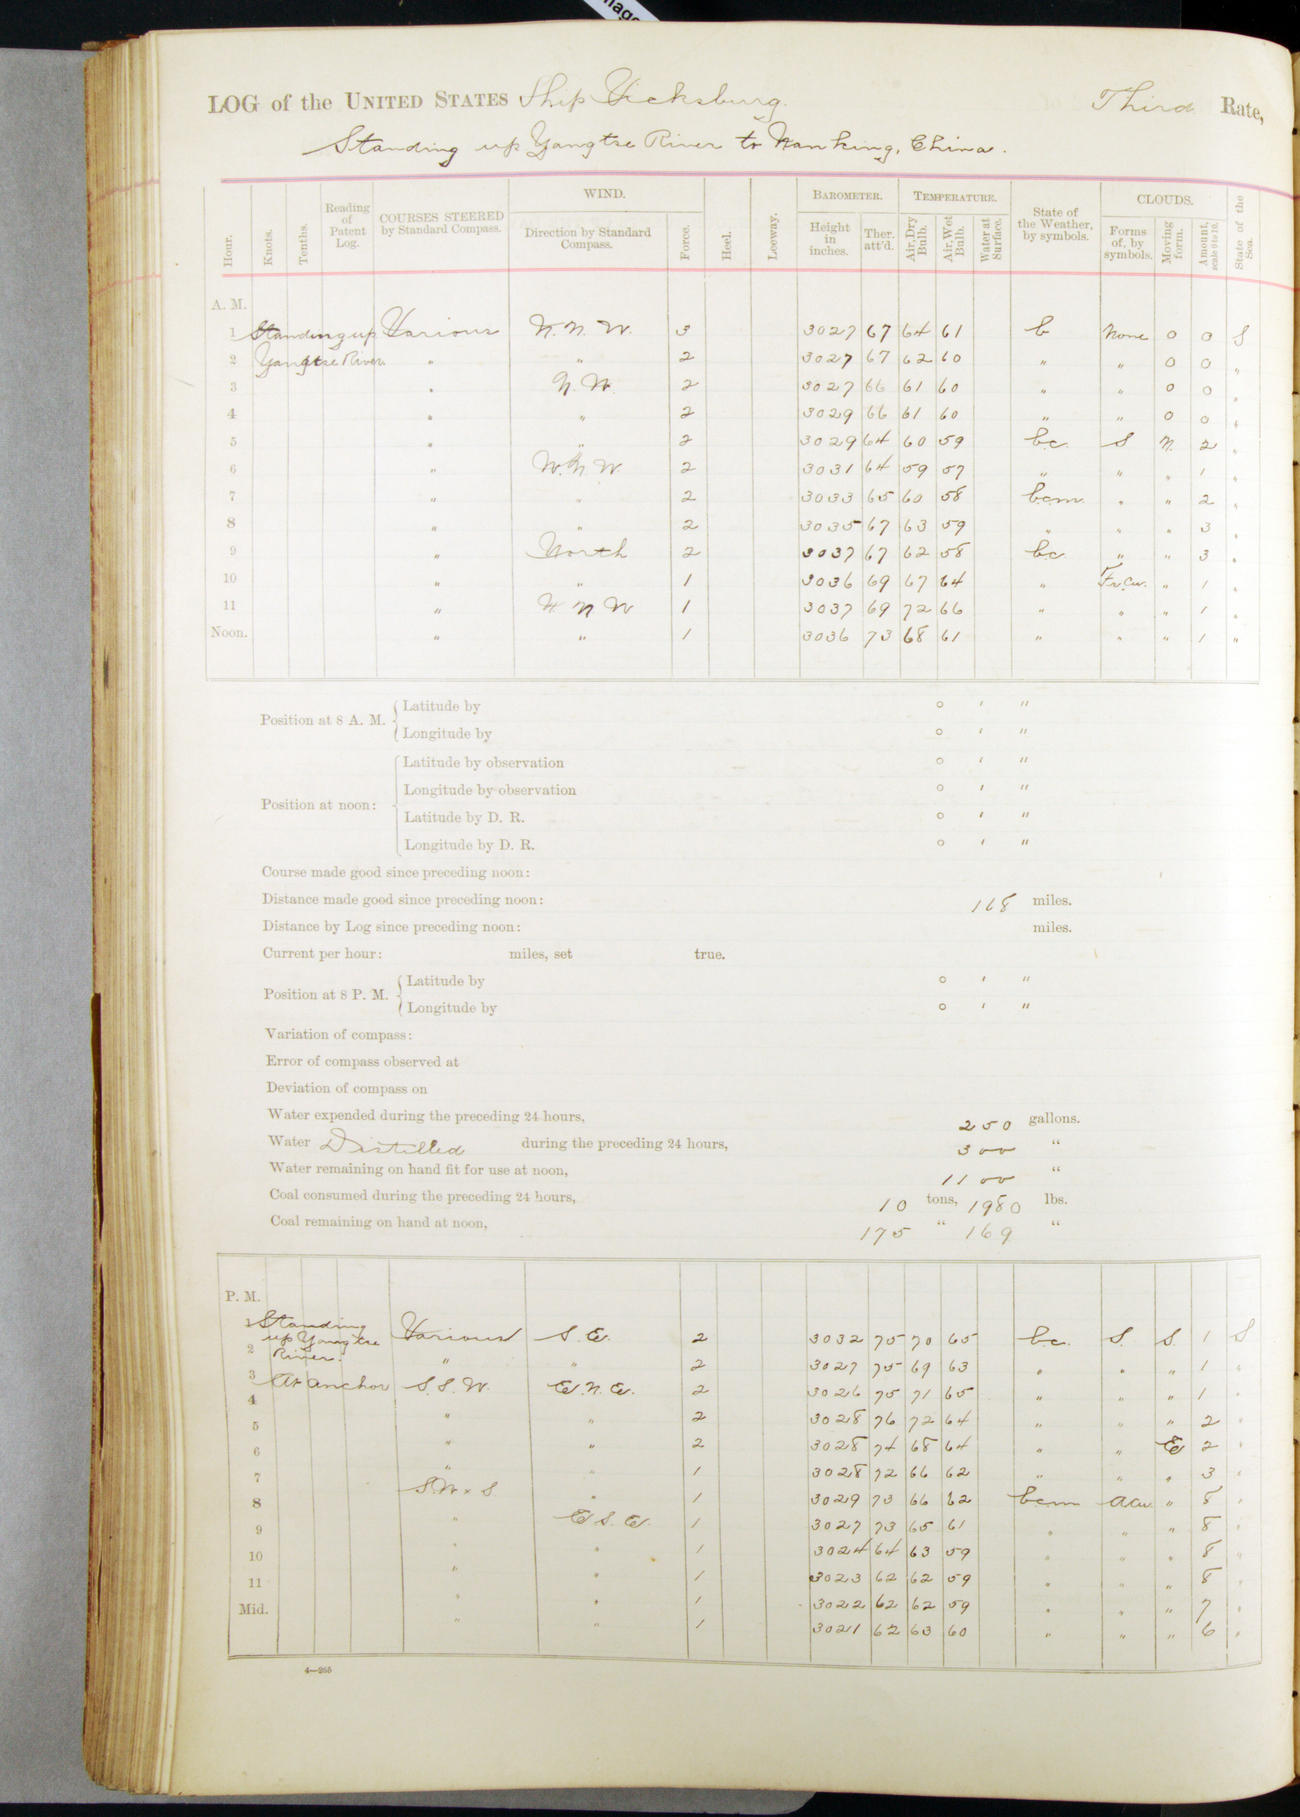 LOG of the UNITED STATES Ship Vicksburg. Third Rate,
Standing up Yangtse River to Nanking, China.
Hour. Knots. Tenths. Reading of Patent Log. COURSES STEERED by Standard Compass. WIND. Direction by Standard Compass. Force. Heel. Leeway. BAROMETER. Height in inches. Ther. att'd. TEMPERATURE. Air, Dry Bulb. Air, Wet Bulb. Water at Surface. State of the Weather, by symbols. CLOUDS. Forms of, by symbols. Moving form. Amount, scale 0 to 10. State of the Sea.
A. M.
1 Standing up Various N. N. W. 3 3027 67 64 61 b None 0 0 S
2 Yangtse River. " " 2 3027 67 62 60 " " 0 0 "
3 " N. W. 2 3027 66 61 60 " " 0 0 "
4 " " 2 3029 66 61 60 " " 0 0 "
5 " " 2 3029 64 60 59 b.c. S N. 2 "
6 " W. N. W. 2 3031 64 59 57 " " " 1 "
7 " " 2 3033 65 60 58 bcm " " 2 "
8 " " 2 3035 67 63 59 " " " 3 "
9 " North 2 3037 67 62 58 bc " " 3 "
10 " " 1 3036 69 67 64 " Fr.Cu. " 1 "
11 " N N W 1 3037 69 72 66 " " " 1 "
Noon. " " 1 3036 73 68 61 " " " 1 "
Position at 8 A. M. Latitude by ° ' "
Longitude by ° ' "
Position at noon: Latitude by observation ° ' "
Longitude by observation ° ' "
Latitude by D. R. ° ' "
Longitude by D. R. ° ' "
Course made good since preceding noon:
Distance made good since preceding noon: 168 miles.
Distance by Log since preceding noon: miles.
Current per hour: miles, set true.
Position at 8 P. M. Latitude by ° ' "
Longitude by ° ' "
Variation of compass:
Error of compass observed at
Deviation of compass on
Water expended during the preceding 24 hours, 250 gallons.
Water Distilled during the preceding 24 hours, 300 "
Water remaining on hand fit for use at noon, 1100 "
Coal consumed during the preceding 24 hours, 10 tons, 1980 lbs.
Coal remaining on hand at noon, 175 " 169 "
P. M.
1 Standing up Yangtse River. Various S. E. 2 3032 75 70 65 b.c. S. S. 1 S
2 " " 2 3027 75 69 63 " " " 1 "
3 At anchor S. S. W. E. N. E. 2 3026 75 71 65 " " " 1 "
4 " " 2 3028 76 72 64 " " " 2 "
5 " " 2 3028 74 68 64 " " E 2 "
6 " " 1 3028 72 66 62 " " " 3 "
7 S.W x S " 1 3029 73 66 62 bcm ACu. " 8 "
8 " E. S. E. 1 3027 73 65 61 " " " 8 "
9 " " 1 3024 64 63 59 " " " 8 "
10 " " 1 3023 62 62 59 " " " 8 "
11 " " 1 3022 62 62 59 " " " 7 "
Mid. " " 1 3021 62 63 60 " " " 6 "
4—265